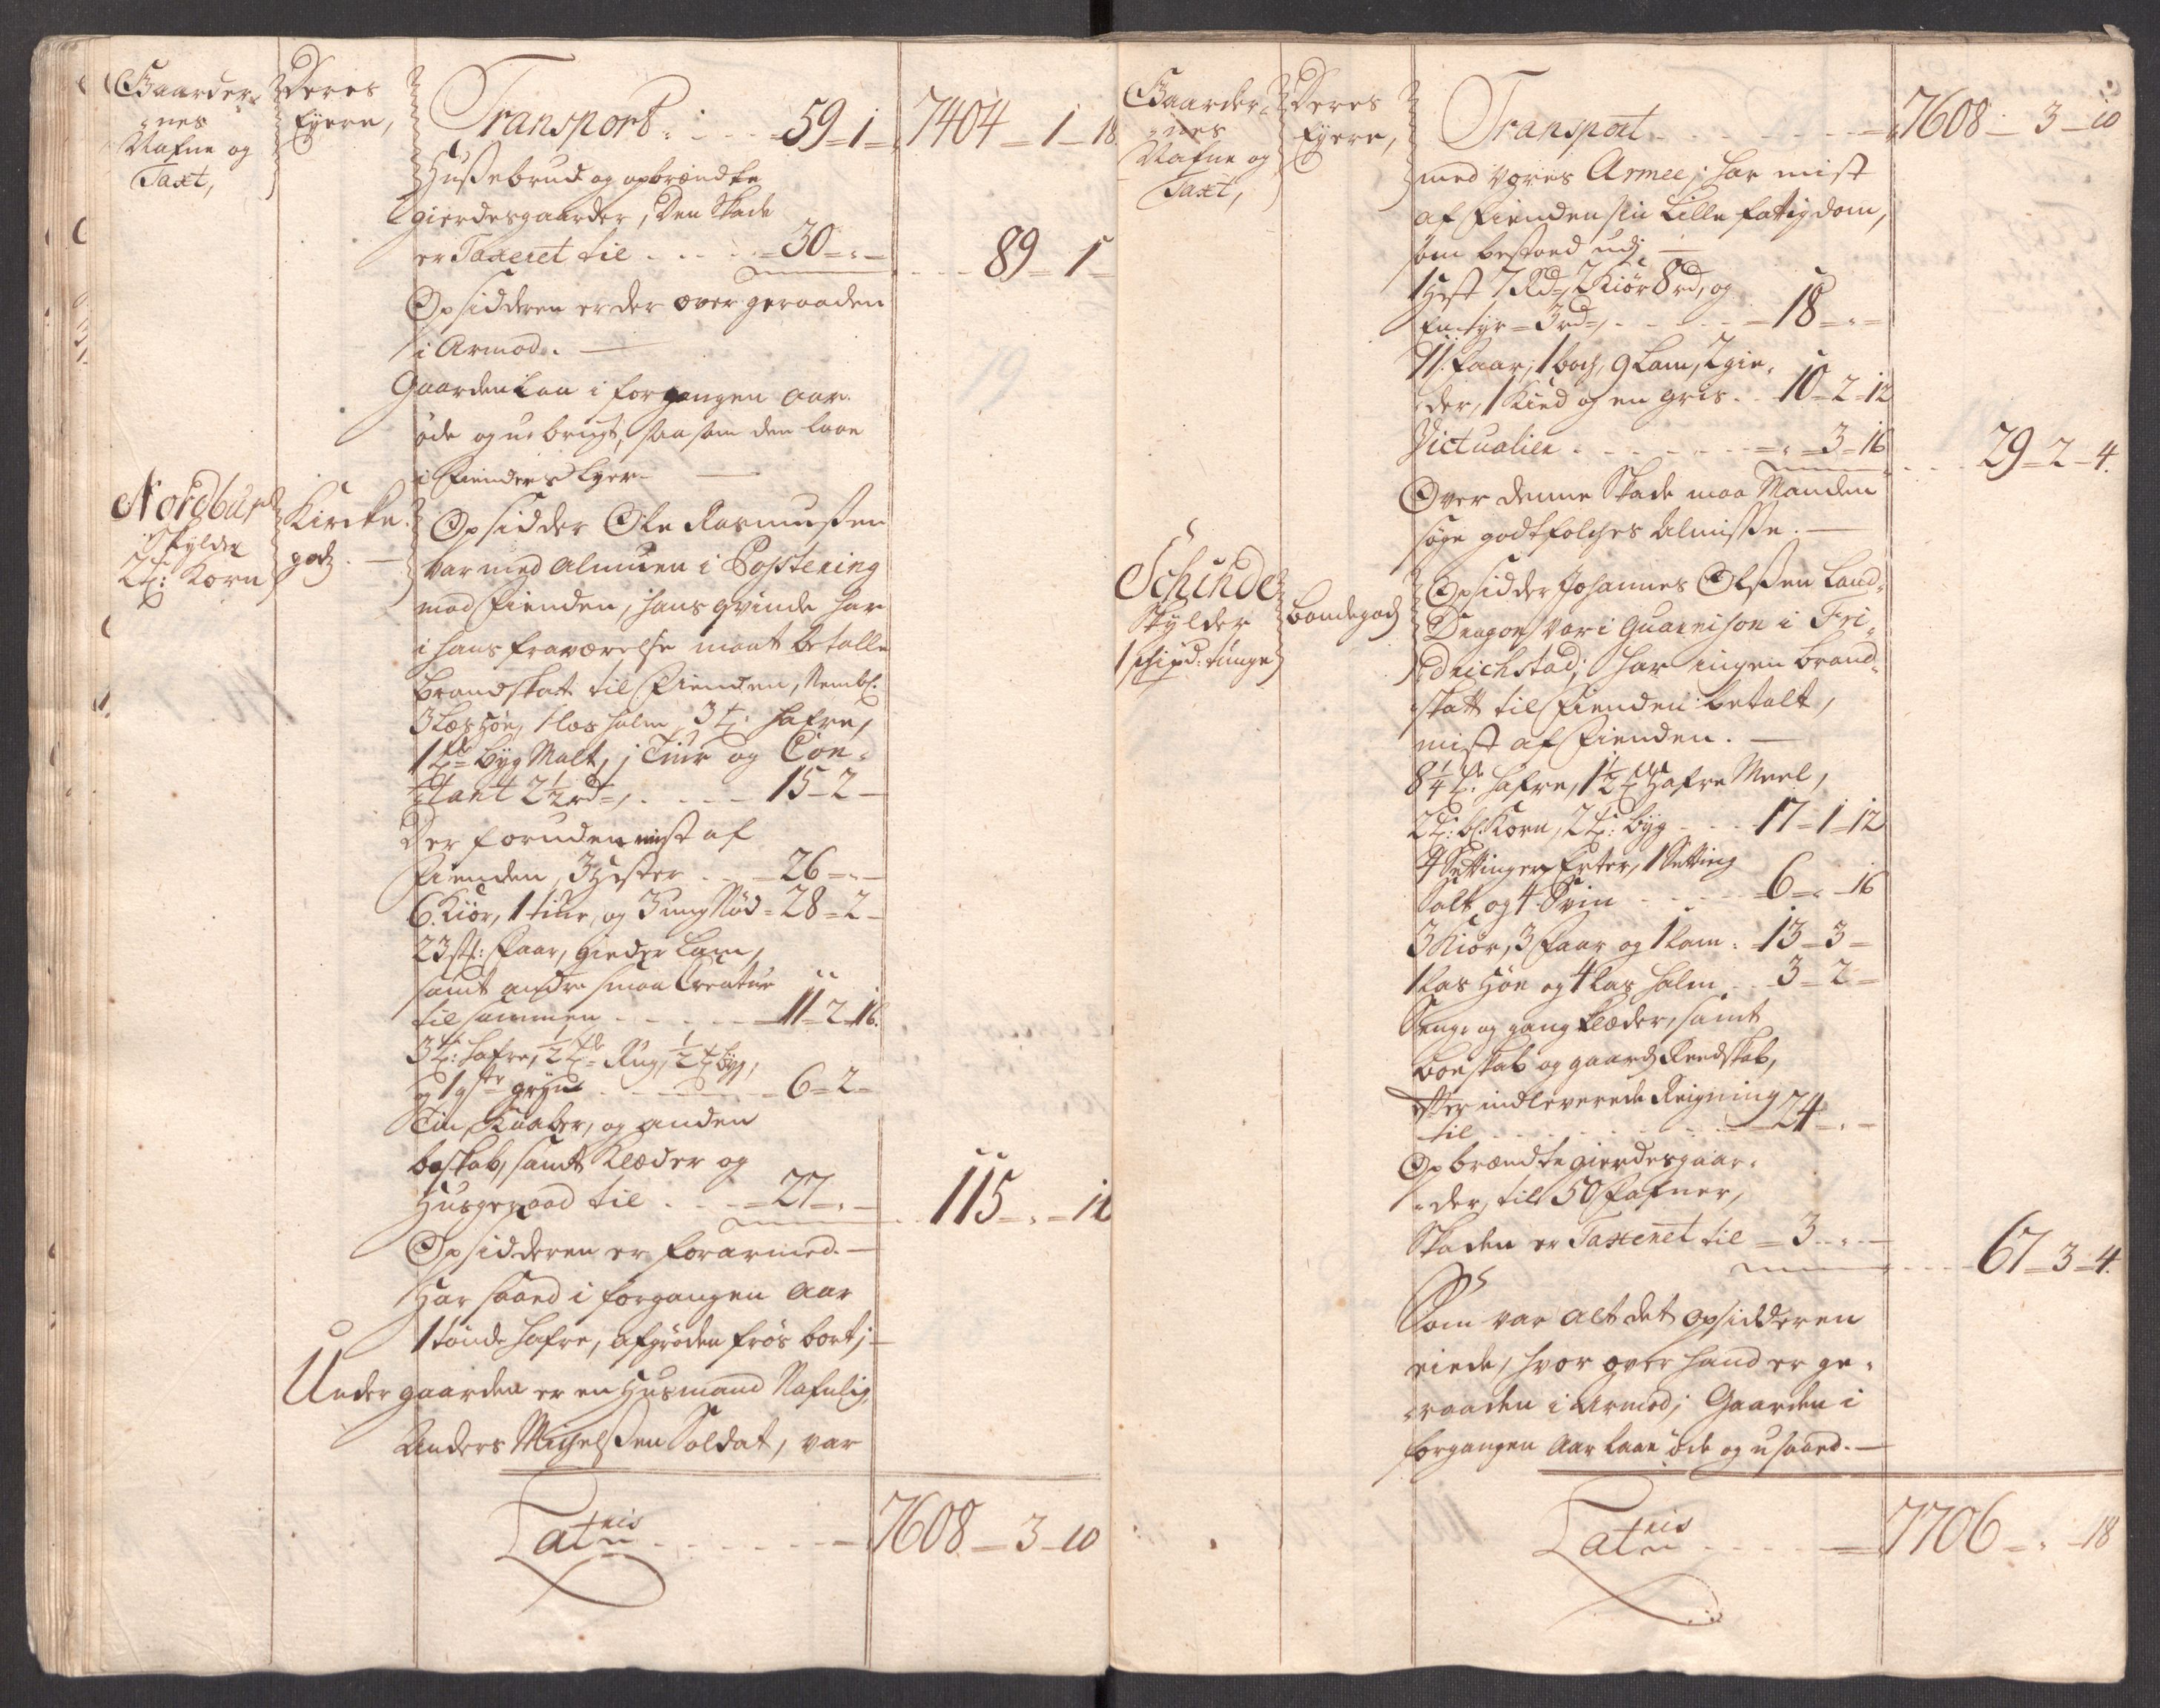 Gaarder- Deres
nes Eyere,
Nafne og
Taxt,
Transport . . . 59 - 1 - 7404 - 1 - 18
Hussebrud og opbrændte
gierdesgaarder, den Skade
er Taxeret til . . . . 30 - „ - . . . 89 - 1 -
Opsidderen er der over geraaden
i Armod. —
Gaarden laa i forgangen Aar
øde og u-brugt, saasom den laae
i Fiendens Lyer. —
Nordbu
skylder
2 t: Korn
Kircke-
godz. —
Opsidder Ole Rasmussen
var med Almuen i Postering
mod Fienden, hans qvinde har
i hans fraværelse maat betalle
brandskat til Fienden, Nembl.
3 læs høe, 1 læs halm 3 t: hafre,
1 t: byg Malt, j Tiur og Con-
tant 2½ rd . . . . . 15 - 2 -
Der foruden mist af
Fienden, 3 Hester . . . 26 - „ -
6 Kiør, 1 tiur, og 3 ung Nød - 28 - 2 -
23 st: Faar, Gieder Lam,
samt andre smaa Creatur
til sammen . . . . . 11 - 2 - 16.
3 t: hafre, ½ t: Rug, ½ t byg,
og 1 gryn . . . . 6 - 2 -
Tin, Kaaber, og anden
boskab, samt Klæder og
Husgeraad til . . . 27 - „ - . . 115 - „ - 16
Opsidderen er forarmed. —
Har saaed i forgangen Aar
1 tønde hafre, afgrøden frøs bort; —
Under gaarden er en Husmand Nafnlig
Anders Michelssen Soldat, var
Lateris . . . . . . 7608 - 3 - 10
Gaarder- Deres
nes Eyere,
Nafne og
Taxt,
Transport . . . . . . . 7608 - 3 - 10
med vores Armee; har mist
af Fienden sin Lille fattigdom,
som bestoed udj —
1 Hest 7 Rd, 2 Kiør 8 rd, og
En tyr - 3 rd, . . . . . 18 - „ -
11 Faar, 1 bock, 9 Lam, 2 gie-
der, 1 Kied og en gris . . 10 - 2 - 12
Victualier . . . . . . „ - 3 - 16 . . . 29 - 2 - 4.
Over denne Skade maa Manden
søge godtfolches Almisse. —
Schinde
Skylder
1 schipd: tunge
bondegodz
Opsidder Johannes Olssen Land-
Dragon var i Guarnison i Fri-
drichstad; har ingen brand-
skatt til Fienden betalt,
mist af Fienden. —
8¼ t: hafre, 1½ t hafre Meel,
2 t: bl: Korn, 2 t: byg . . . 17 - 1 - 12
4 Settinger Erter, 1 Setting
Salt og 4 Svin . . . . . 6 - „ - 16
3 Kiør, 3 Faar og 1 Lam . 13 - 3 -
1 las høe og 4 las halm . . 3 - 2 -
Senge og gang klæder, samt
boeskab og gaards Reedskab,
efter indleverede Reigning
til . . . . . . . . . . 24 - „ -
Opbrændte gierdesgaar-
der, til 50 Fafner,
Skaden er Taxeret til - 3 - „ - . . . 67 - 3 - 4.
Som var alt det opsidderen
eiede, hvor over hand er ge-
raaden i Armod; Gaarden i
forgangen Aar laae øde og usaaed. —
Lateris . . . . . . 7706 - „ - 18